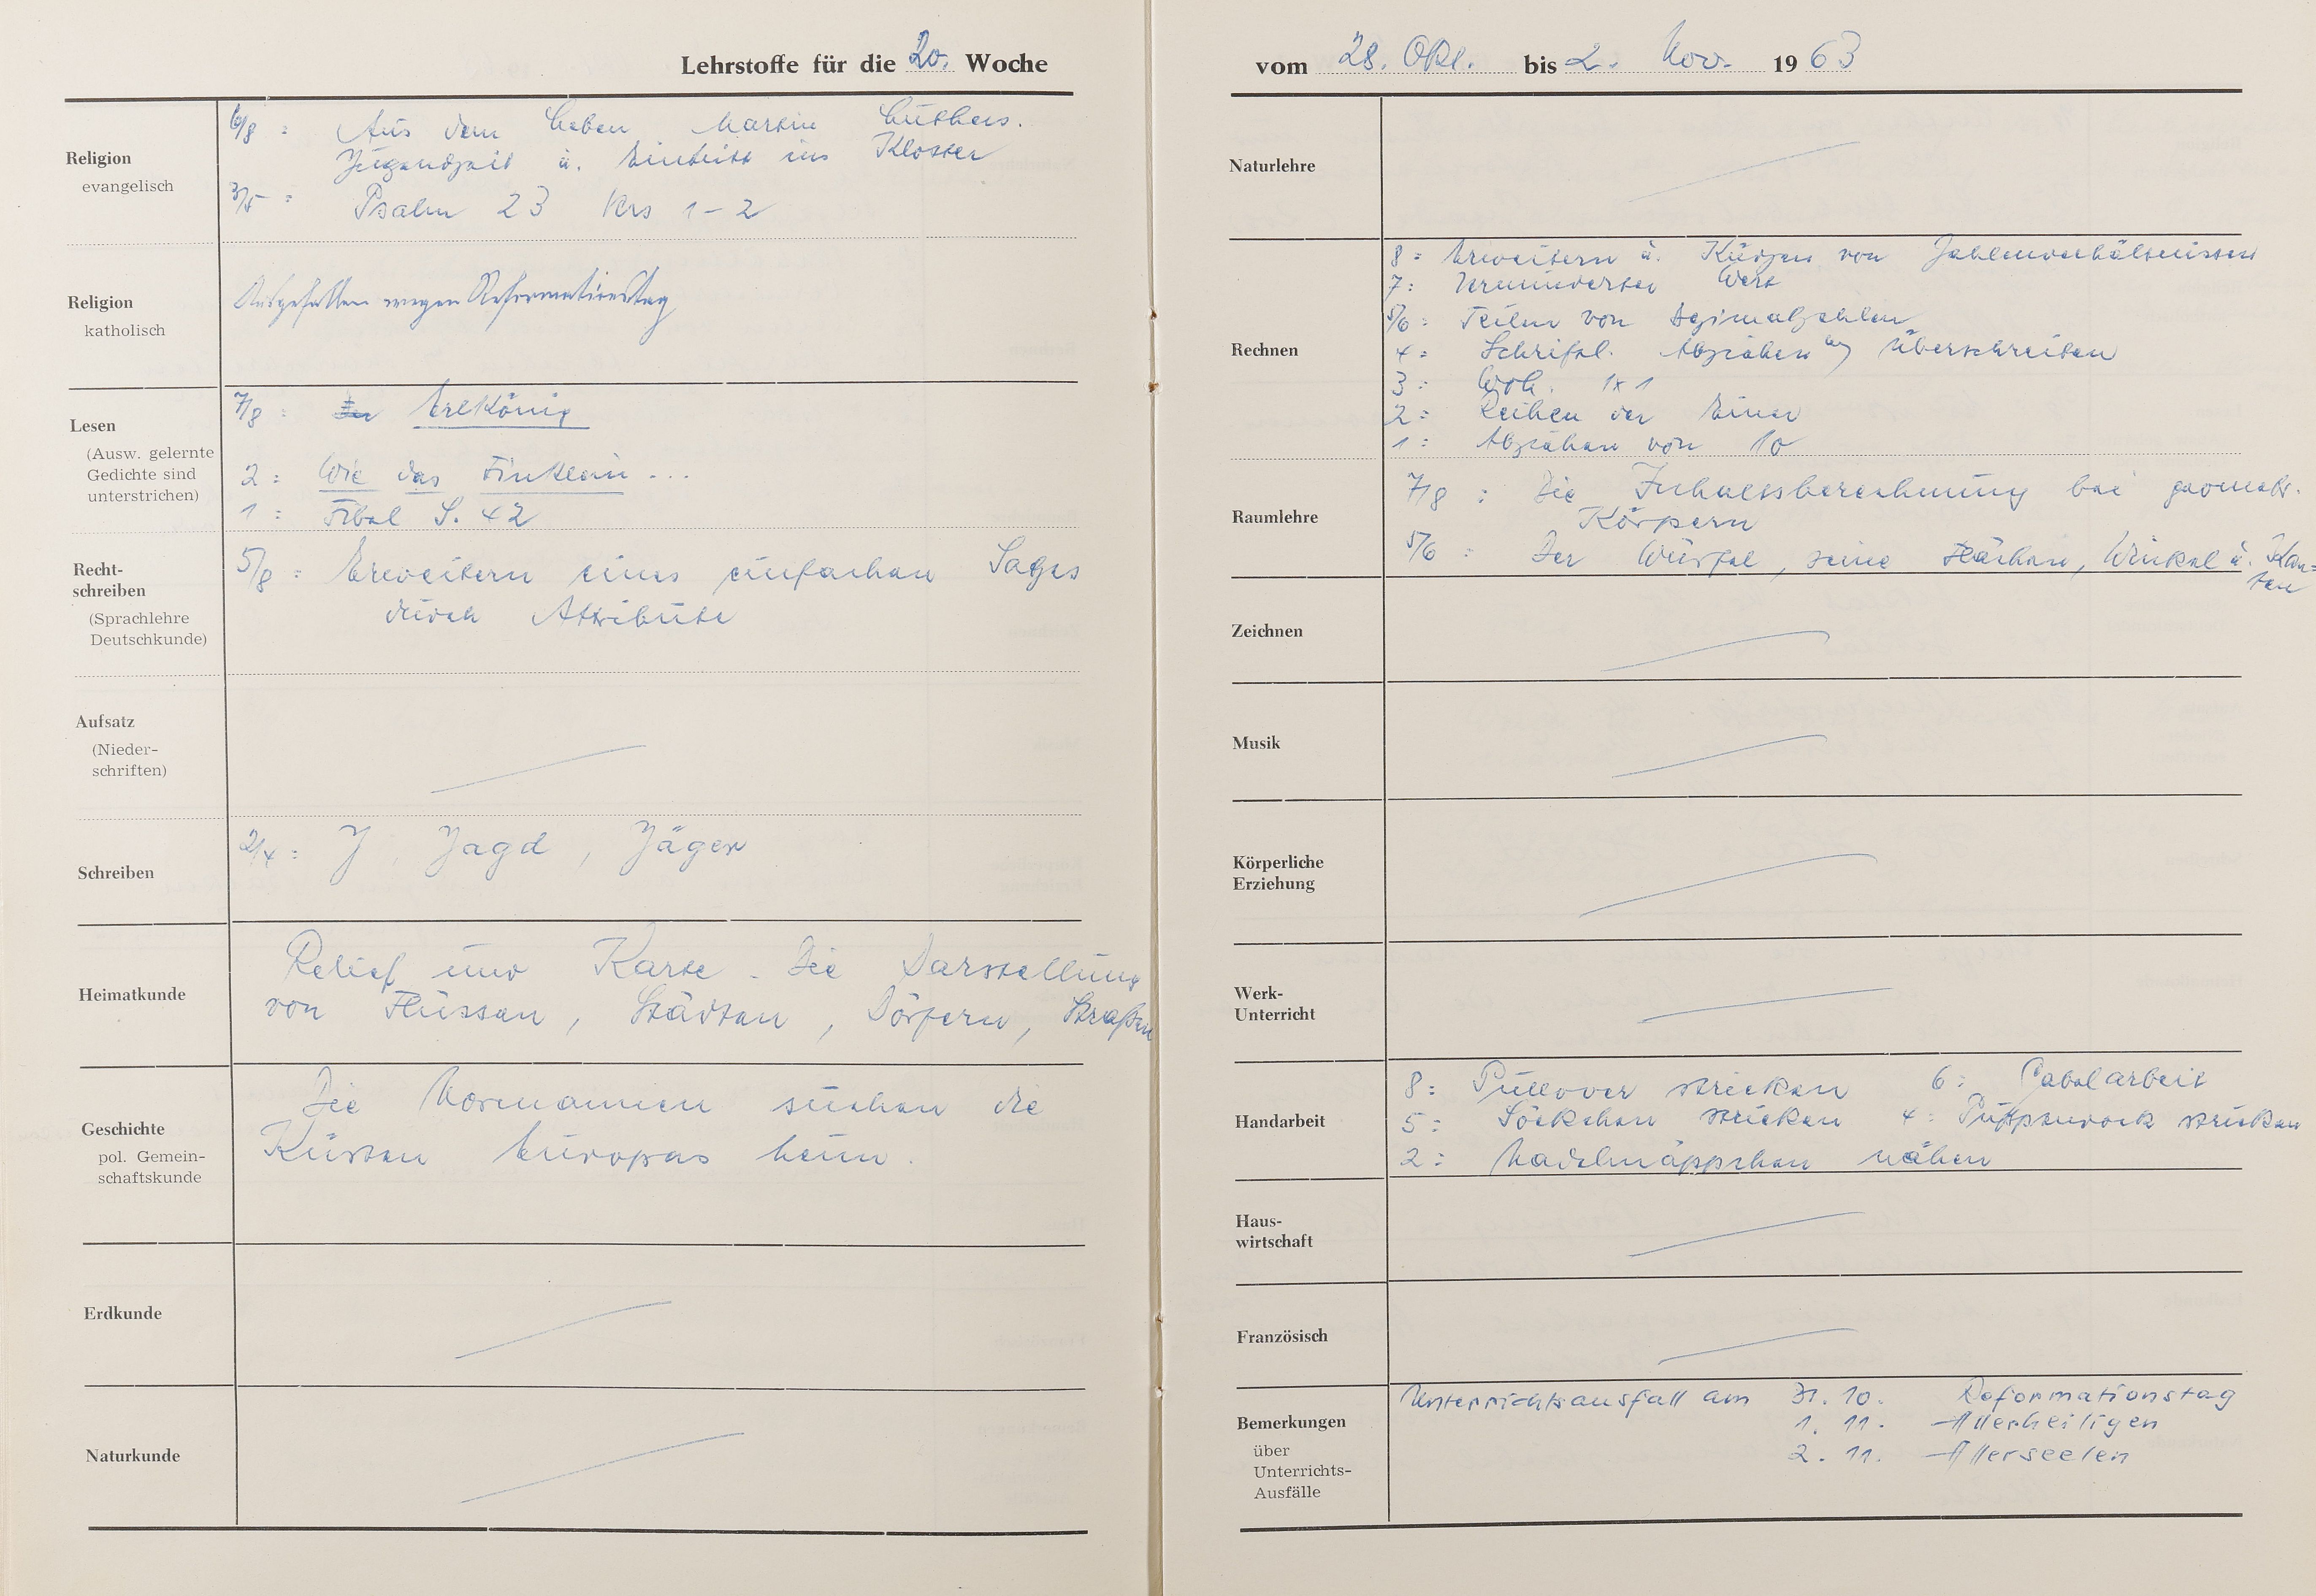 Lehrstoffe für die 20. Woche
Religion
evangelisch
6/8 : Aus dem Leben Martin Luthers.
Jugendzeit u. Eintritt ins Kloster
3/5 : Psalm 23 Vers 1-2
Religion
katholisch
Ausgefallen wegen Reformationstag
Lesen
(Ausw. gelernte
Gedichte sind
unterstrichen)
7/8 : Der Erlkönig
2 : Wie das Finklein ...
1 : Fibel S. 42
Recht-
schreiben
(Sprachlehre
Deutschkunde)
5/8 : Erweitern eines einfachen Satzes
durch Attribute
Aufsatz
(Nieder-
schriften)
Schreiben
2/4 : J, Jagd, Jäger
Heimatkunde
Relief und Karte - Die Darstellung
von Flüssen, Städten, Dörfern, Straßen
Geschichte
pol. Gemein-
schaftskunde
Die Normannen suchen die
Küsten Europas heim.
Erdkunde
Naturkunde
vom 28. Okt. bis 2. Nov. 1963
Naturlehre
Rechnen
8 : Erweitern u. Kürzen von Zahlenverhältnissen
7 : Verminderter Wert
5/6 : Teilen von Dezimalzahlen
4 : Schriftl. Abziehen Überschreiten
3 : Wdh. 1x1
2 : Reihen der Einer
1 : Abziehen von 10
Raumlehre
7/8 : Die Inhaltsberechnung bei geometr.
Körpern
5/6 : Der Würfel, seine Flächen, Winkel u. Kan=
ten
Zeichnen
Musik
Körperliche
Erziehung
Werk-
Unterricht
Handarbeit
8 : Pullover stricken 6 : Gabelarbeit
5 : Söckchen stricken 4 : Puppenrock stricken
2 : Nadelmäppchen nähen
Haus-
wirtschaft
Französisch
Bemerkungen
über
Unterrichts-
Ausfälle
Unterrichtsausfall am 31. 10. Reformationstag
1. 11. Allerheiligen
2. 11. Allerseelen